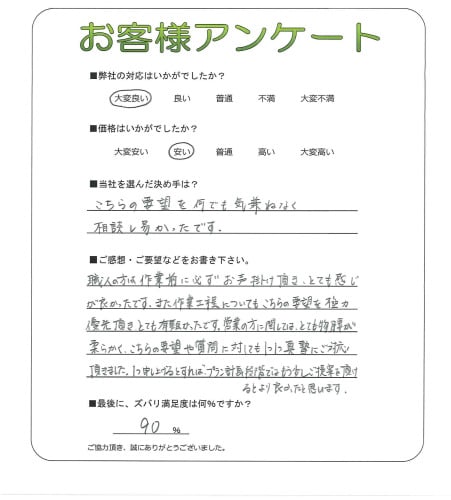 お客様アンケート
■弊社の対応はいかがでしたか？
大変良い 良い 普通 不満 大変不満
■価格はいかがでしたか？
大変安い 安い 普通 高い 大変高い
■当社を選んだ決め手は？
こちらの要望を何でも気兼ねなく
相談し易かったです．
■ご感想・ご要望などをお書き下さい。
職人の方は作業前に必ずお声掛け頂き、とても感じ
が良かったです。また作業工程についてもこちらの要望を極力
優先頂きとても有難かったです。営業の方に関しては、とても物腰が
柔らかく、こちらの要望や質問に対しても1つ1つ真摯にご対応
頂きました。1つ申し上げるとすれば、プラン計画段階ではもう少しご提案を頂け
るとより良かったと思います．
■最後に、ズバリ満足度は何％ですか？
90 ％
ご協力頂き、誠にありがとうございました。